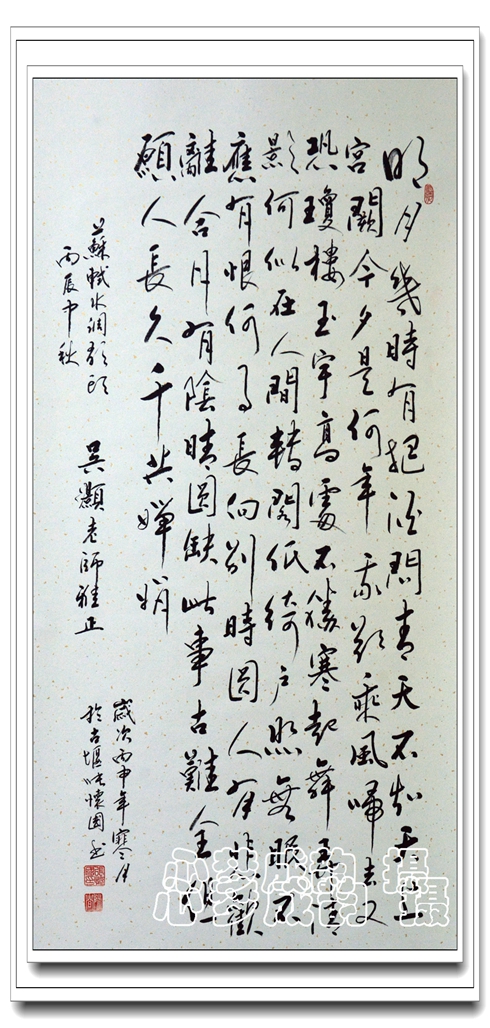 明月幾時有把酒問青天不知天上
宮闕今夕是何年我欲乘風歸去又
恐瓊樓玉宇高處不勝寒起舞弄清
影何似在人間轉閣低綺戶照無眠不
應有恨何事長向別時圓人有悲歡
離合月有陰晴圓缺此事古難全但
願人長久千共嬋娟
蘇軾水調歌頭
丙辰中秋
吳灝老師雅正
歲次丙申年寒月
於古堰咏懷園